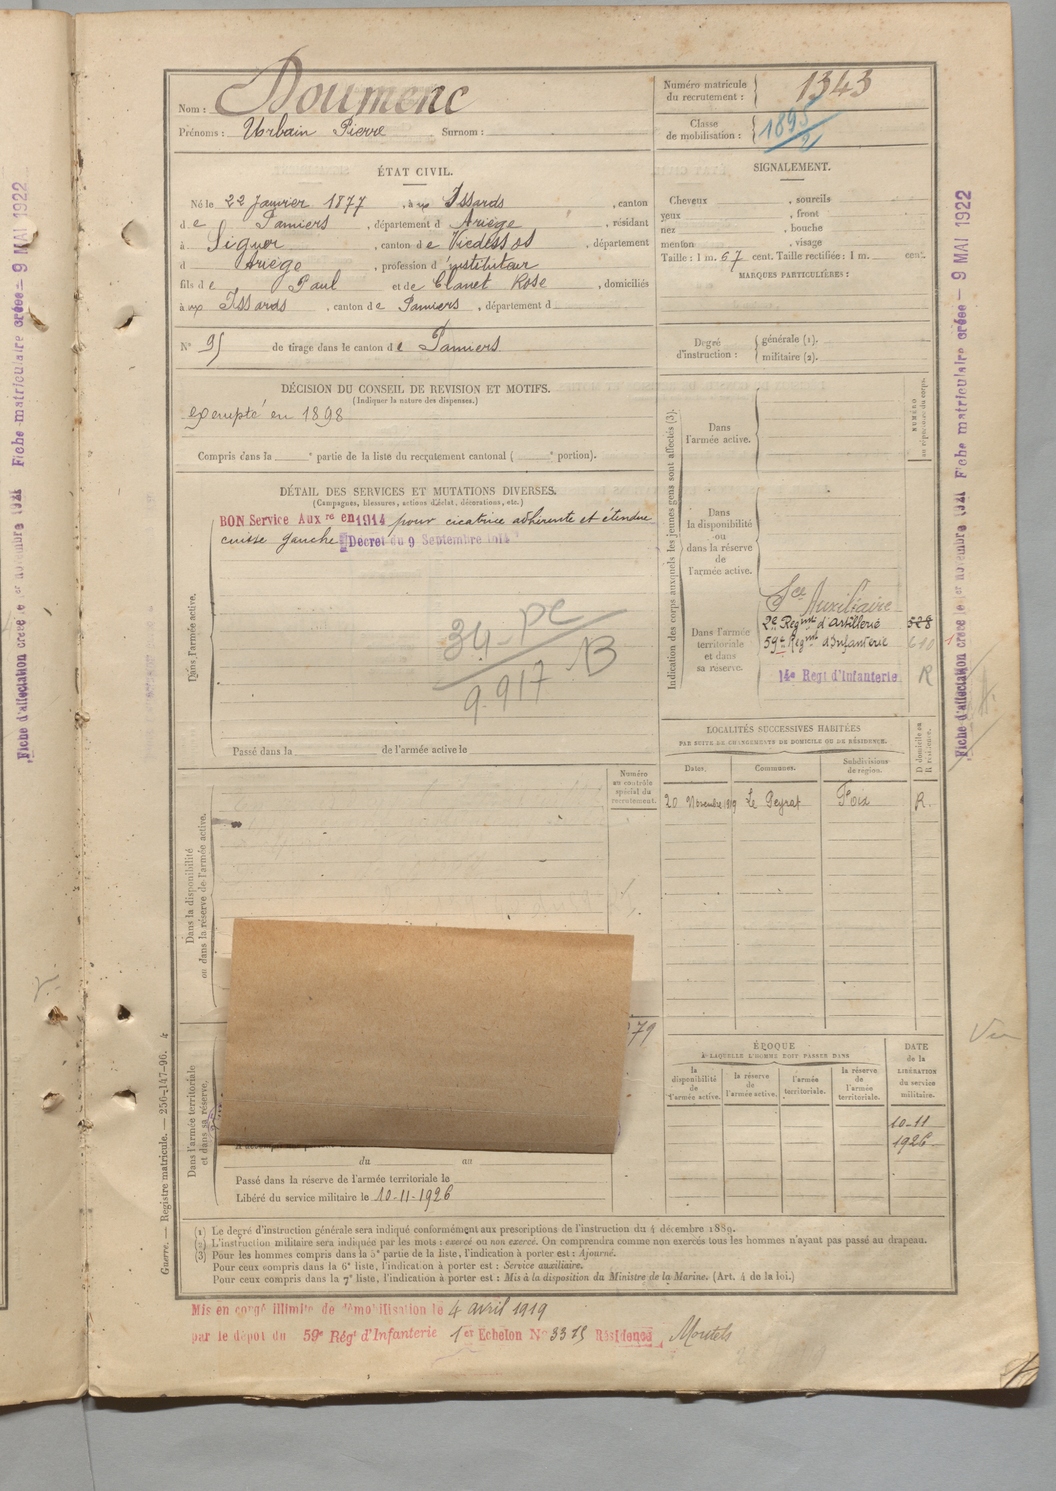 Nom : Doumenc
Prénoms : Urbain Pierre Surnom :
Numéro matricule du recrutement : 1343
Classe de mobilisation : 1895
ÉTAT CIVIL.
Né le 22 Janvier 1877, à ux Issards, canton
d e Pamiers, département d Ariège, résidant
à Siguer, canton d e Vicdessos, département
d Ariège, profession d'instituteur
fils d e Paul et de Clanet Rose, domiciliés
à ux Issards, canton de Pamiers, département d
N° 95 de tirage dans le canton d e Pamiers
SIGNALEMENT.
Cheveux, sourcils
yeux, front
nez, bouche
menton, visage
Taille : 1 m. 67 cent. Taille rectifiée : 1 m. cent.
MARQUES PARTICULIÈRES :
Degré d'instruction : générale (1).
militaire (2).
DÉCISION DU CONSEIL DE REVISION ET MOTIFS.
(Indiquer la nature des dispenses.)
exempté en 1898
Compris dans la e partie de la liste du recrutement cantonal ( e portion).
DÉTAIL DES SERVICES ET MUTATIONS DIVERSES.
(Campagnes, blessures, actions d'éclat, décorations, etc.)
BON Service Aux re en 1914 pour cicatrice adhérente et étendue
cuisse gauche Décret du 9 Septembre 1914
Dans l'armée active.
34 PC
9.917 B
Passé dans la de l'armée active le
Indication des corps auxquels les jeunes gens sont affectés (3).
NUMÉRO au répertoire du corps.
Dans l'armée active.
Dans la disponibilité ou dans la réserve de l'armée active.
Dans l'armée territoriale et dans sa réserve.
Sce Auxiliaire
2e Regmt d'Artillerie 528
59e Regmt d'Infanterie 610
14e Regt d'Infanterie R
LOCALITÉS SUCCESSIVES HABITÉES
PAR SUITE DE CHANGEMENTS DE DOMICILE OU DE RÉSIDENCE.
Dates. Communes. Subdivisions de région. D domicile ou R résidence.
20 Novembre 1919 Le Peyrat Foix R.
Dans la disponibilité ou dans la réserve de l'armée active.
Numéro au contrôle spécial du recrutement.
79
Dans l'armée territoriale et dans sa réserve.
du au
Passé dans la réserve de l'armée territoriale le
Libéré du service militaire le 10-11-1926
ÉPOQUE
À LAQUELLE L'HOMME DOIT PASSER DANS
la disponibilité de l'armée active.
la réserve de l'armée active.
l'armée territoriale.
la réserve de l'armée territoriale.
DATE de la LIBÉRATION du service militaire.
10-11
1926
(1) Le degré d'instruction générale sera indiqué conformément aux prescriptions de l'instruction du 4 décembre 1889.
(2) L'instruction militaire sera indiquée par les mots : exercé ou non exercé. On comprendra comme non exercés tous les hommes n'ayant pas passé au drapeau.
(3) Pour les hommes compris dans la 5e partie de la liste, l'indication à porter est : Ajourné.
Pour ceux compris dans la 6e liste, l'indication à porter est : Service auxiliaire.
Pour ceux compris dans la 7e liste, l'indication à porter est : Mis à la disposition du Ministre de la Marine. (Art. 4 de la loi.)
Mis en congé illimité de démobilisation le 4 avril 1919
par le dépôt du 59e Régt d'Infanterie 1er Echelon N° 3375 Résidence Montels
Guerre. — Registre matricule. — 256-147-96.
Fiche d'affectation créée le 1er novembre 1921 Fiche matriculaire créée — 9 MAI 1922
Fiche d'affectation créée le 1er novembre 1921 Fiche matriculaire créée — 9 MAI 1922